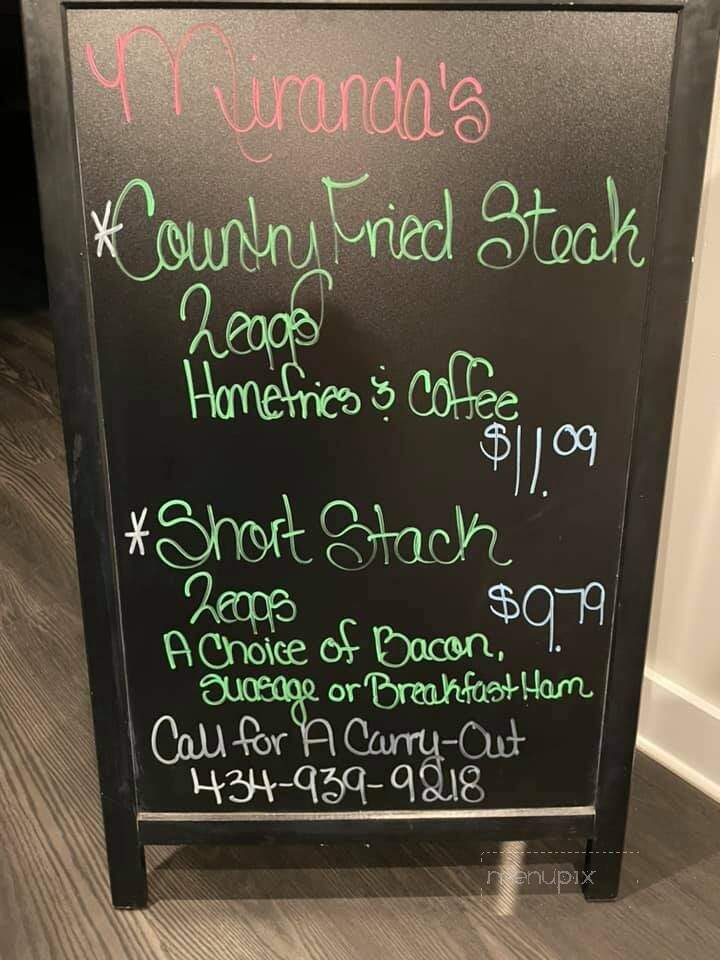 Miranda's
*Country Fried Steak
2 eggs
Homefries & Coffee
$11.09
*Short Stack
2 eggs
$9.79
A Choice of Bacon,
Suasage or Breakfast Ham
Call for A Carry-Out
434-939-9218
menupix